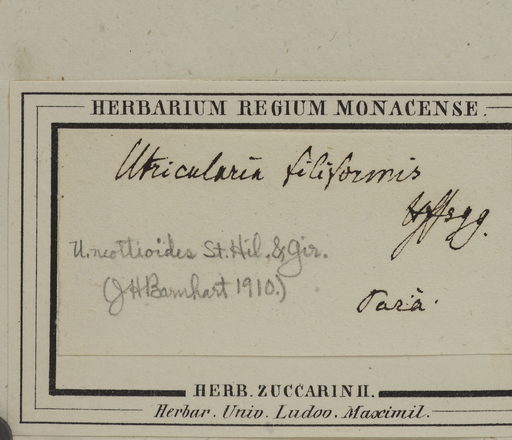 HERBARIUM REGIUM MONACENSE.
Utricularia filiformis
Hffsgg.
U. neottioides St. Hil. & Gir.
(J H Barnhart 1910.)
Pará.
HERB. ZUCCARINII.
Herbar. Univ. Ludov. Maximil.